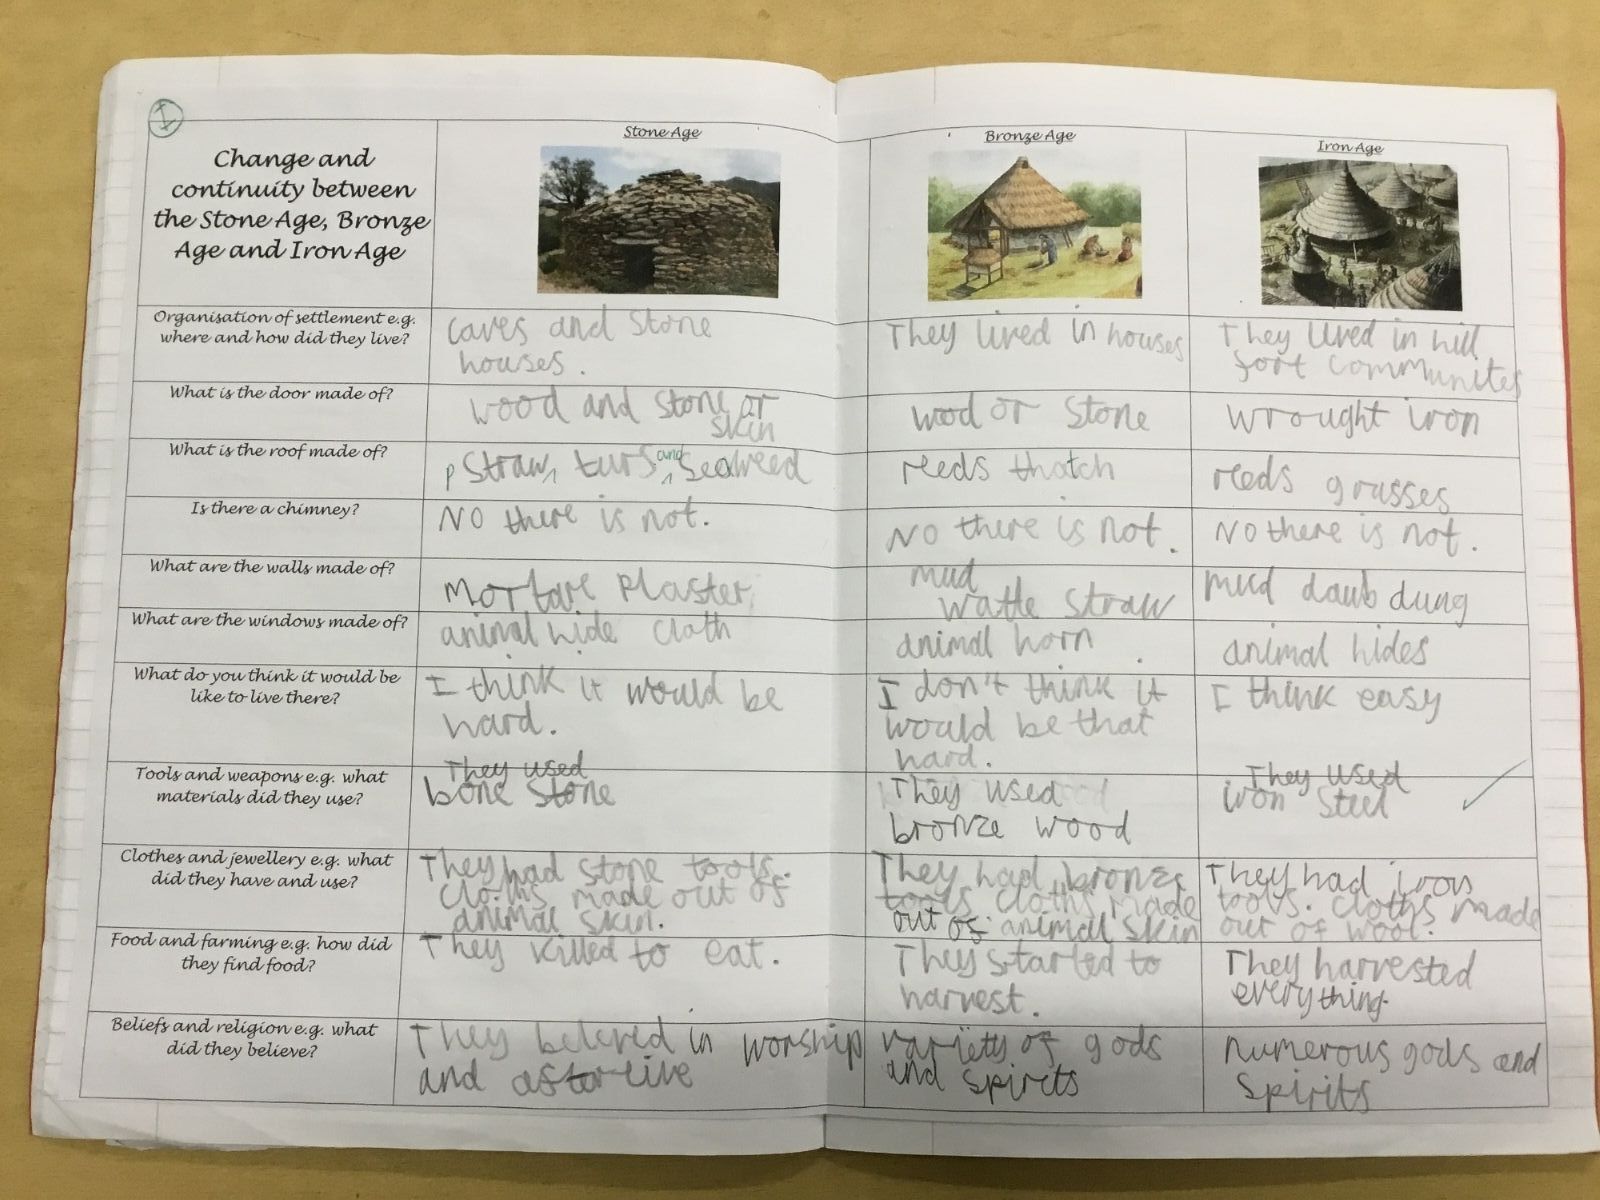 Change and
continuity between
the Stone Age, Bronze
Age and Iron Age
Stone Age
Bronze Age
Iron Age
Organisation of settlement e.g.
where and how did they live?
caves and stone
houses.
They lived in houses
They lived in hill
fort communites
What is the door made of?
wood and stone or
skin
wood or stone
wrought iron
What is the roof made of?
p straw, turs and seaweed
reeds thatch
reeds grasses
Is there a chimney?
No there is not.
No there is not.
No there is not.
What are the walls made of?
Mortare Plaster
mud
watte straw
mud daub dung
What are the windows made of?
animal hide cloth
animal horn
animal hides
What do you think it would be
like to live there?
I think it would be
hard.
I don't think it
would be that
hard.
I think easy
Tools and weapons e.g. what
materials did they use?
They used
bone stone
They used
bronze wood
They used
iron steel
Clothes and jewellery e.g. what
did they have and use?
They had stone tools.
cloths made out of
animal skin.
They had bronze
tools cloths made
out of animal skin
They had iron
tools. cloths made
out of wool.
Food and farming e.g. how did
they find food?
They killed to eat.
They started to
harvest.
They harvested
everything.
Beliefs and religion e.g. what
did they believe?
They beleved in worship
and
variety of gods
and spirits
numerous gods and
spirits